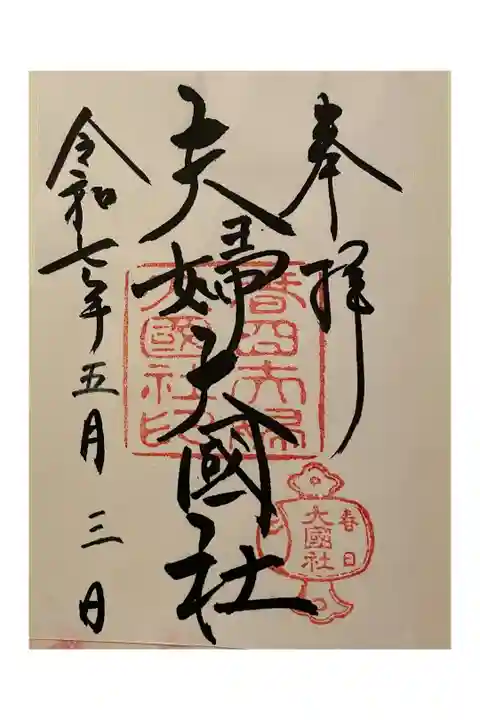 奉拝
夫婦大國社
令和七年五月三日
春日夫婦
大國社印
春日
大國社